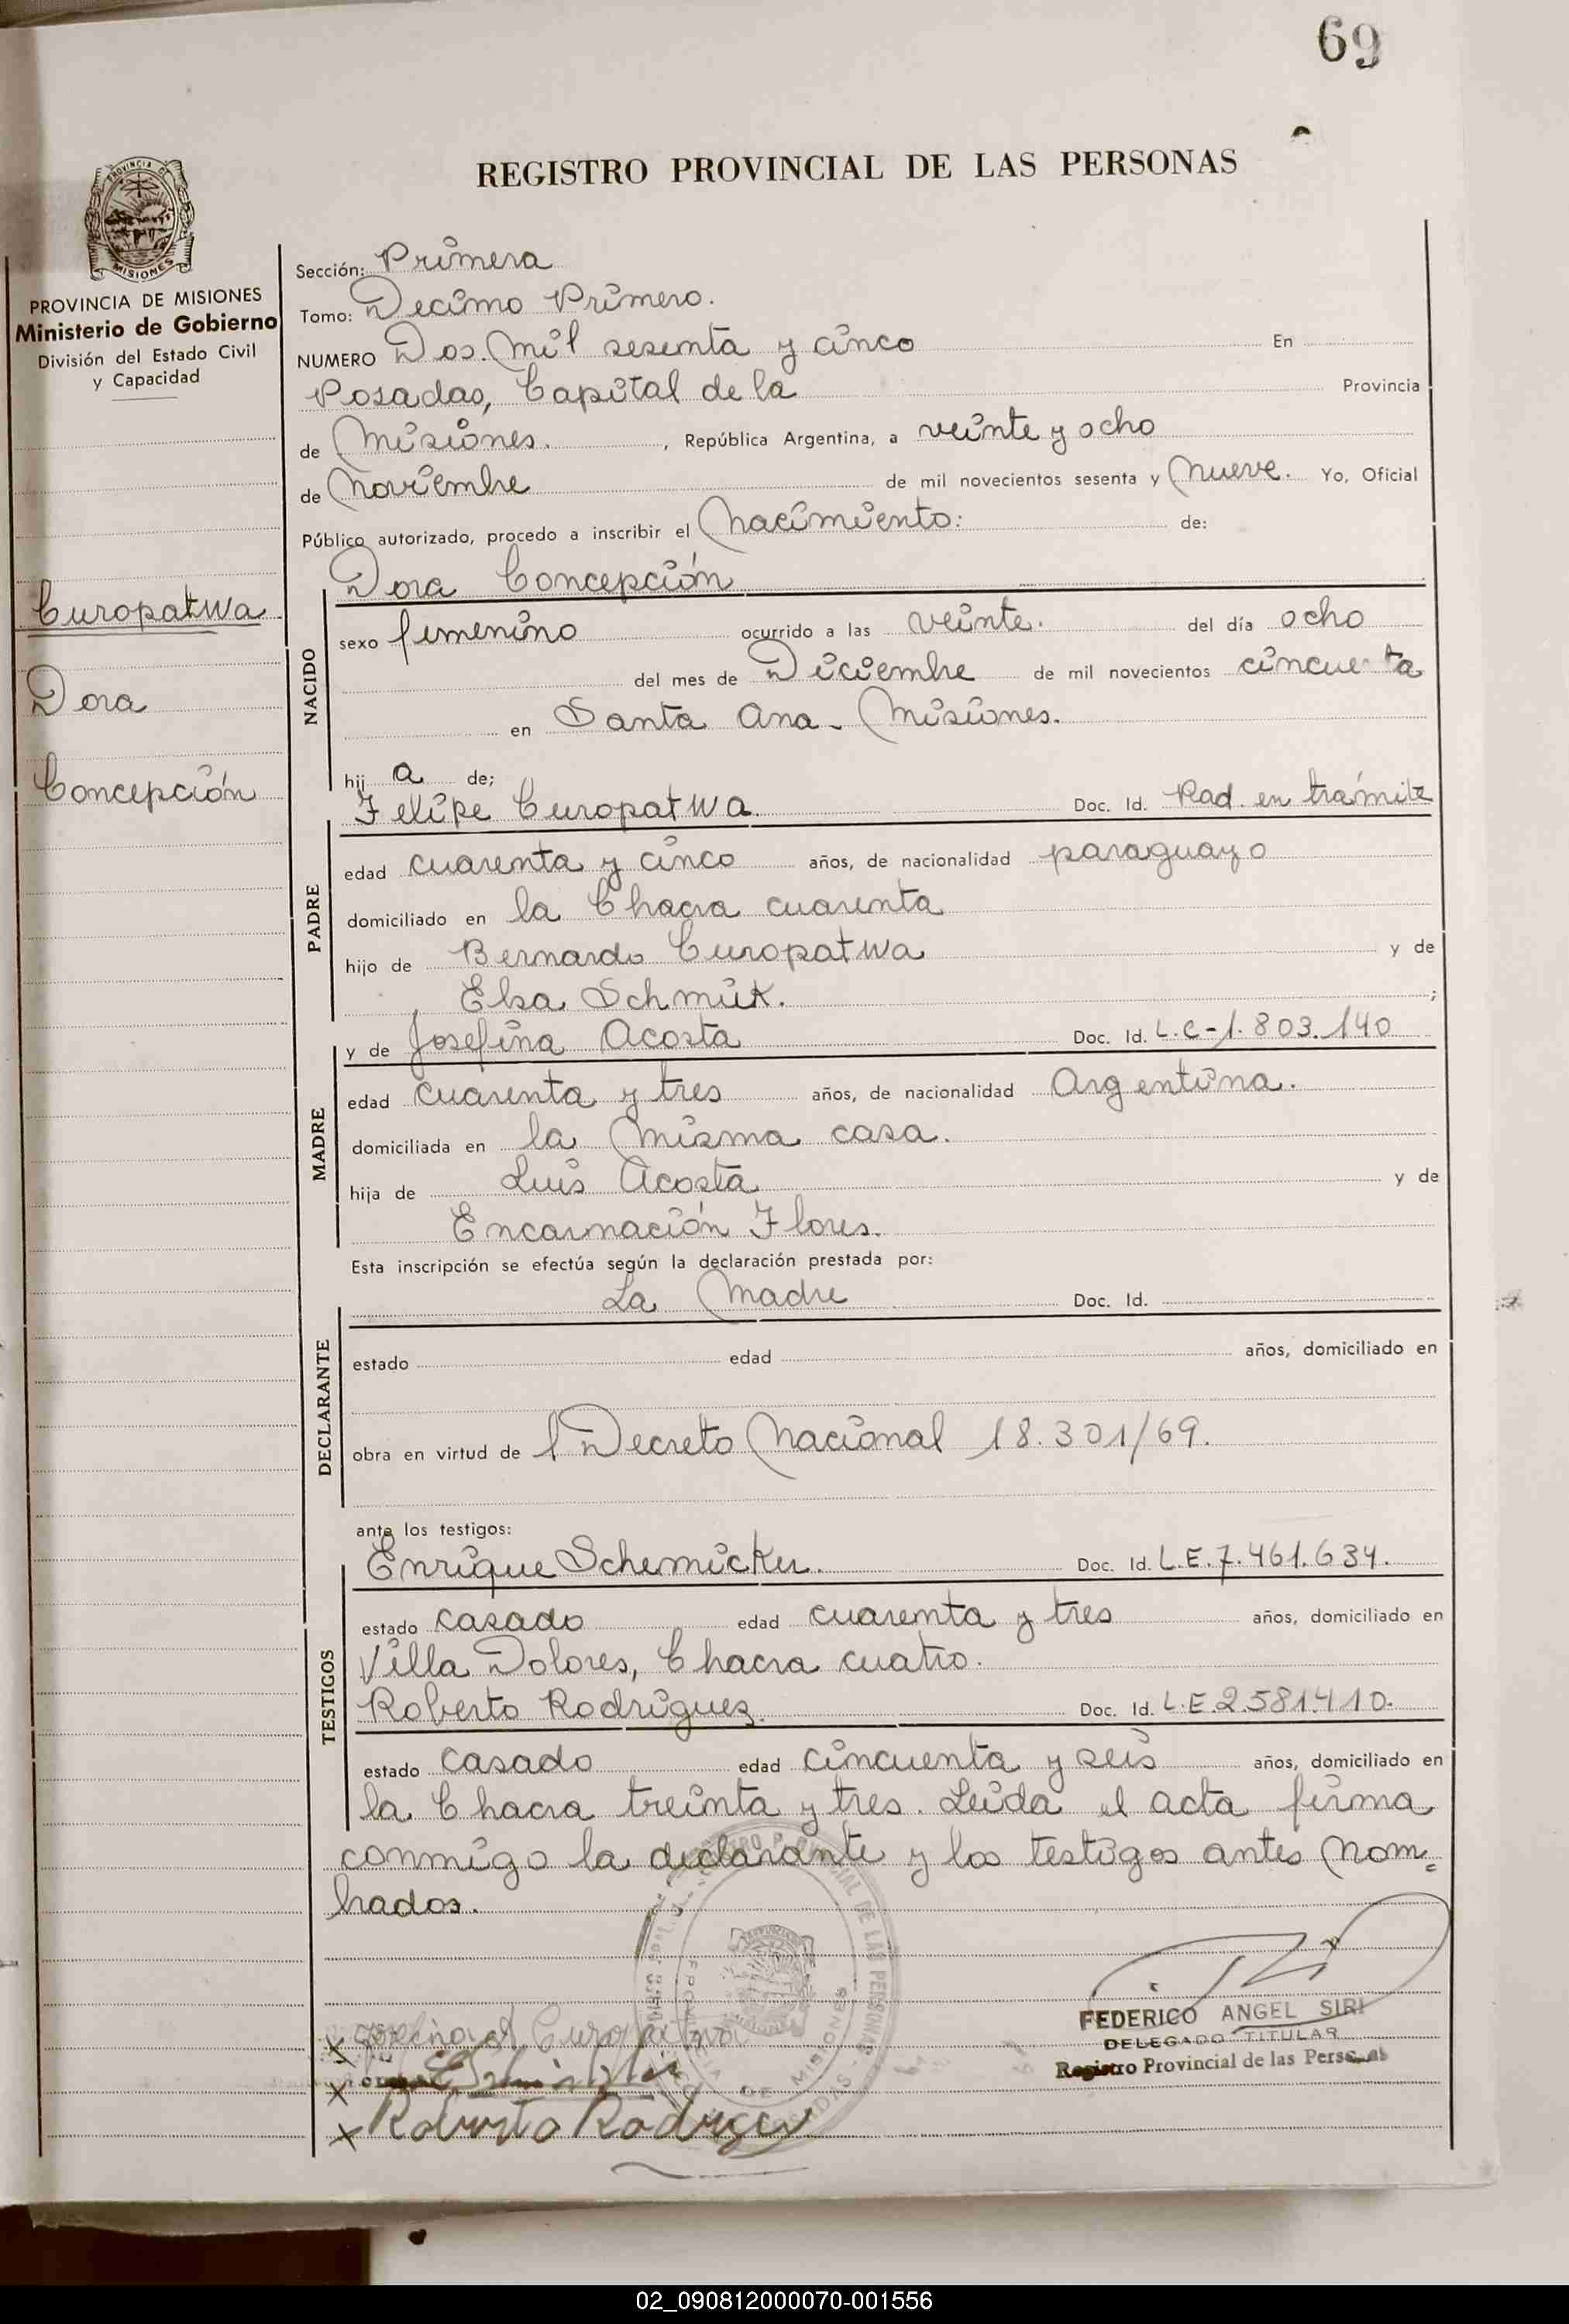 69
REGISTRO PROVINCIAL DE LAS PERSONAS
PROVINCIA DE MISIONES
Ministerio de Gobierno
División del Estado Civil
y Capacidad
Curopatwa
Dora
Concepción
Sección: Primera
Tomo: Decimo Primero.
NUMERO Dos. Mil sesenta y cinco En
Posadas, Capital de la Provincia
de Misiones. , República Argentina, a veinte y ocho
de Noviembre de mil novecientos sesenta y Nueve. Yo, Oficial
Público autorizado, procedo a inscribir el Nacimiento: de:
Dora Concepción
NACIDO
sexo femenino ocurrido a las veinte. del día ocho
del mes de Diciembre de mil novecientos cincuenta
en Santa Ana - Misiones.
hij a de;
Felipe Curopatwa. Doc. Id. Rad. en trámite
PADRE
edad cuarenta y cinco años, de nacionalidad paraguayo
domiciliado en la Chacra cuarenta
hijo de Bernardo Curopatwa y de
Elsa Schmit. ;
y de Josefina Acosta Doc. Id. L.C-1.803.140
MADRE
edad cuarenta y tres años, de nacionalidad Argentina.
domiciliada en la misma casa.
hija de Luis Acosta y de
Encarnación Flores.
Esta inscripción se efectúa según la declaración prestada por:
La Madre Doc. Id.
DECLARANTE
estado edad años, domiciliado en
obra en virtud de l Decreto Nacional 18.301/69.
ante los testigos:
Enrique Schemicker. Doc. Id. L.E.7.461.634.
TESTIGOS
estado casado edad cuarenta y tres años, domiciliado en
Villa Dolores, Chacra cuatro.
Roberto Rodríguez. Doc. Id. L.E.2.581.410.
estado casado edad cincuenta y seis años, domiciliado en
la Chacra treinta y tres. Leida el acta firma
conmigo la declarante y los testigos antes nom=
brados.
FEDERICO ANGEL SIRI
DELEGADO TITULAR
Registro Provincial de las Personas
Roberto Rodriguez
02_090812000070-001556